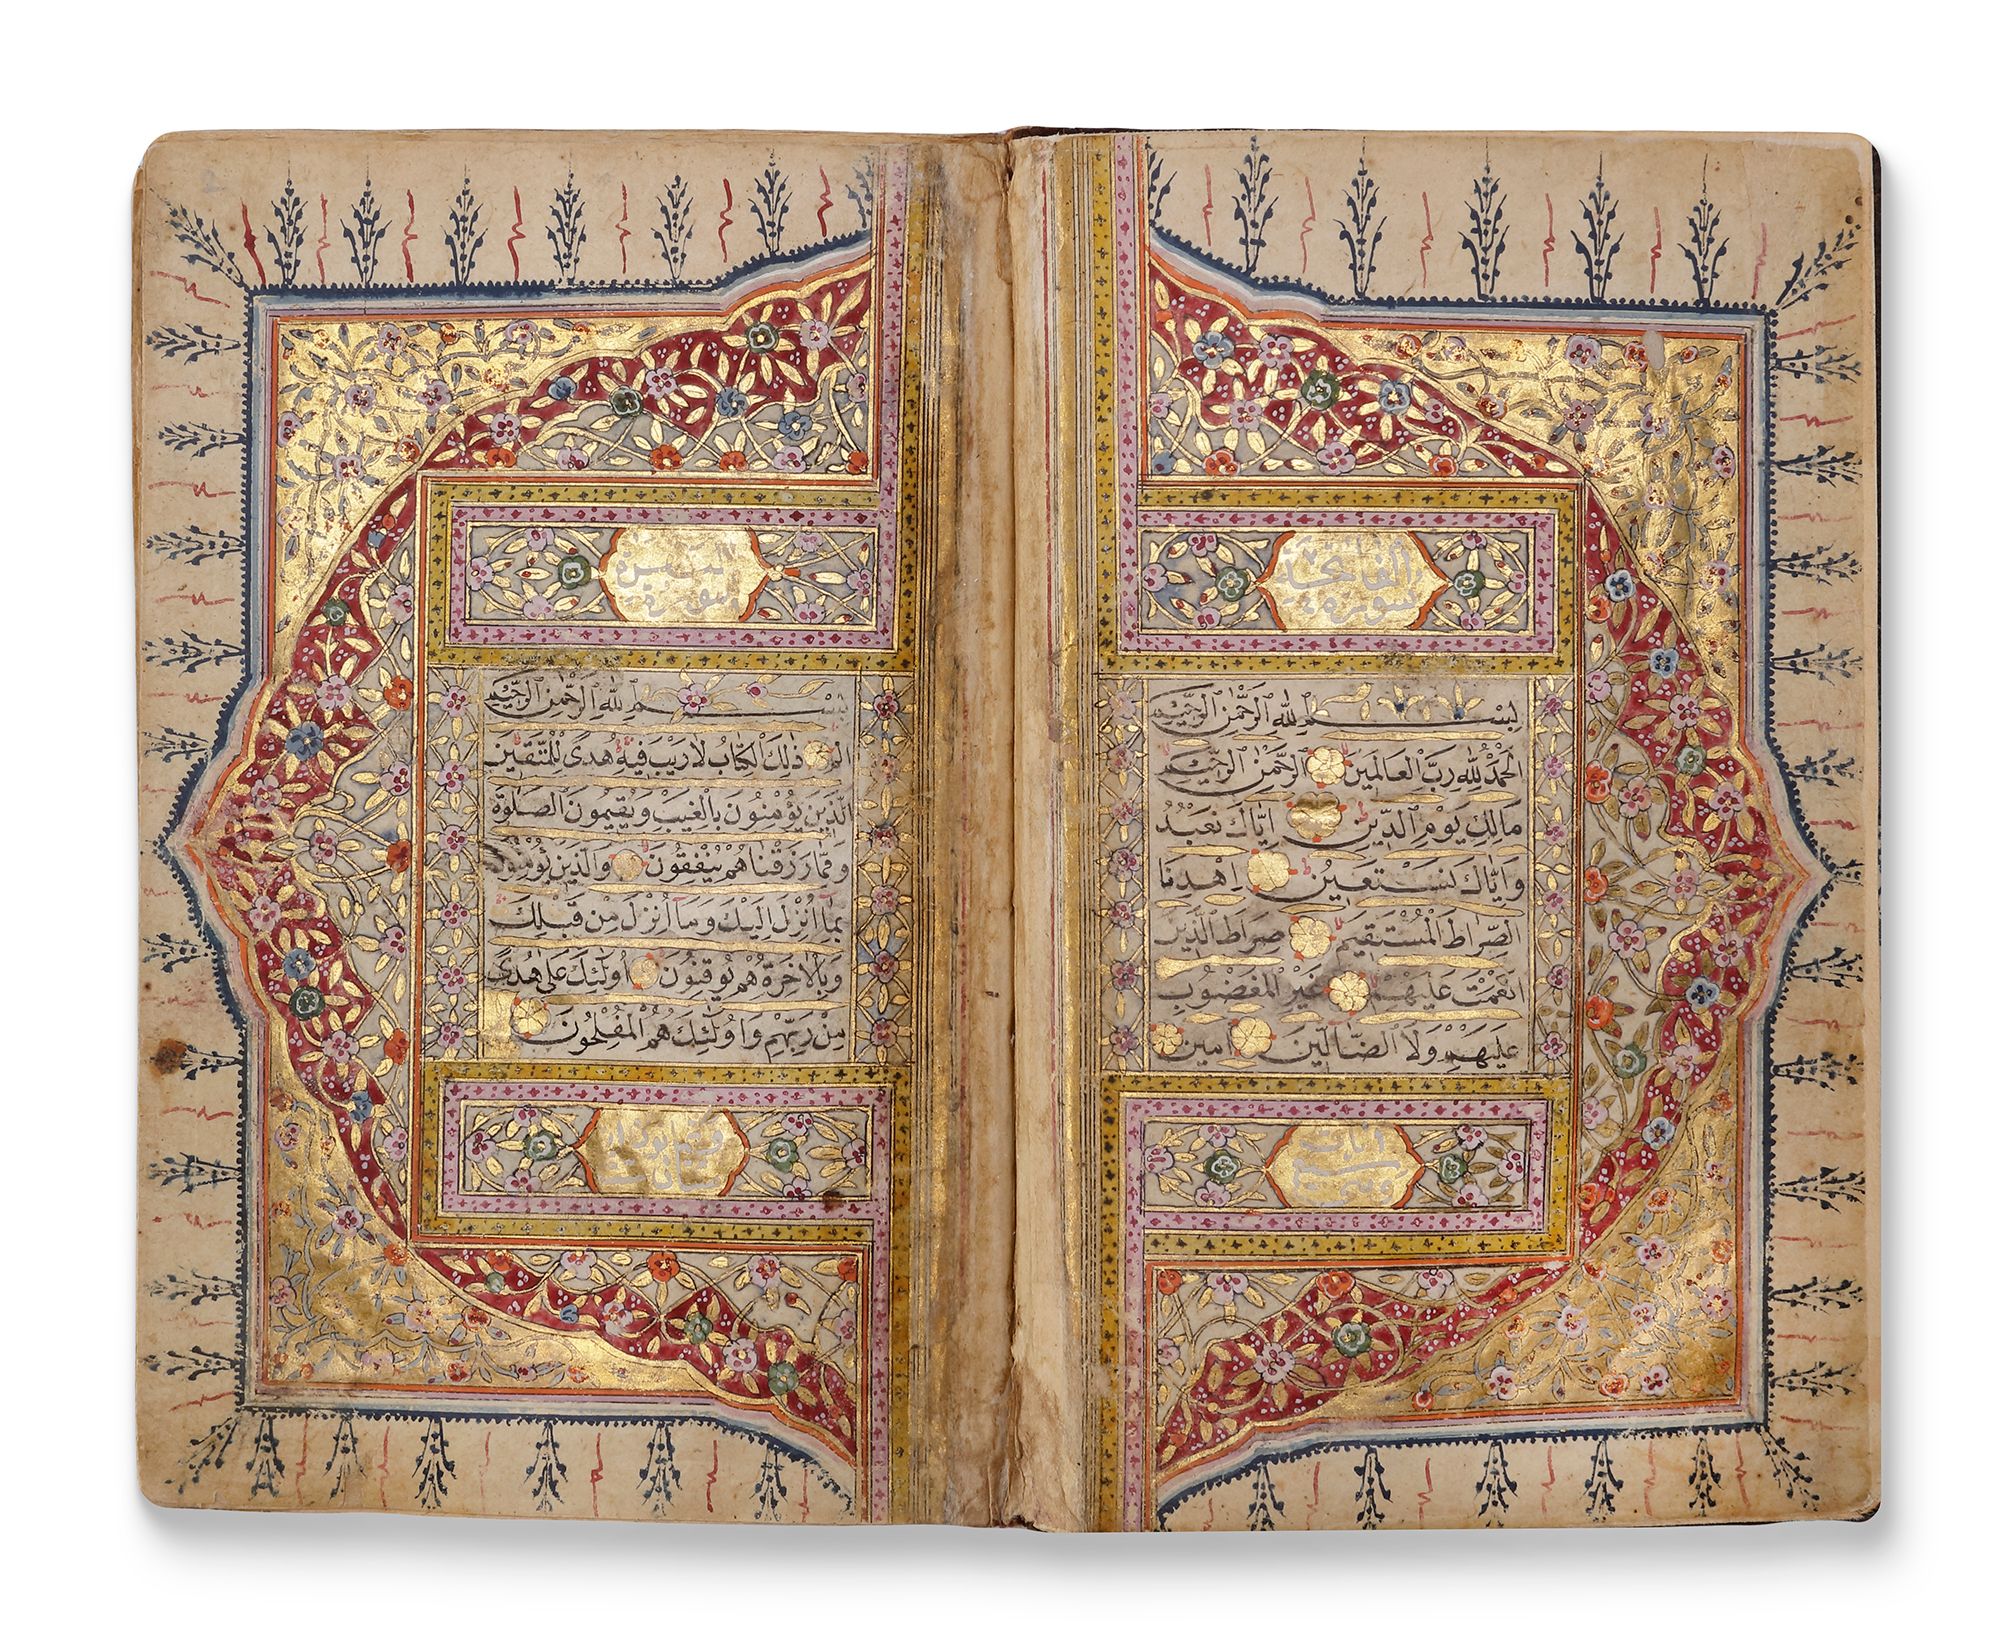 سورة الفاتحة
بسم الله الرحمن الرحيم
الحمد لله رب العالمين الرحمن الرحيم
مالك يوم الدين اياك نعبد
واياك نستعين اهدنا
الصراط المستقيم صراط الذين
انعمت عليهم غير المغضوب
عليهم ولا الضالين امين
سورة
بسم الله الرحمن الرحيم
الم ذلك الكتاب لا ريب فيه هدى للمتقين
الذين يؤمنون بالغيب ويقيمون الصلوة
ومما رزقناهم ينفقون والذين يؤمنون
بما انزل اليك وما انزل من قبلك
وبالاخرة هم يوقنون اولئك على هدى
من ربهم واولئك هم المفلحون